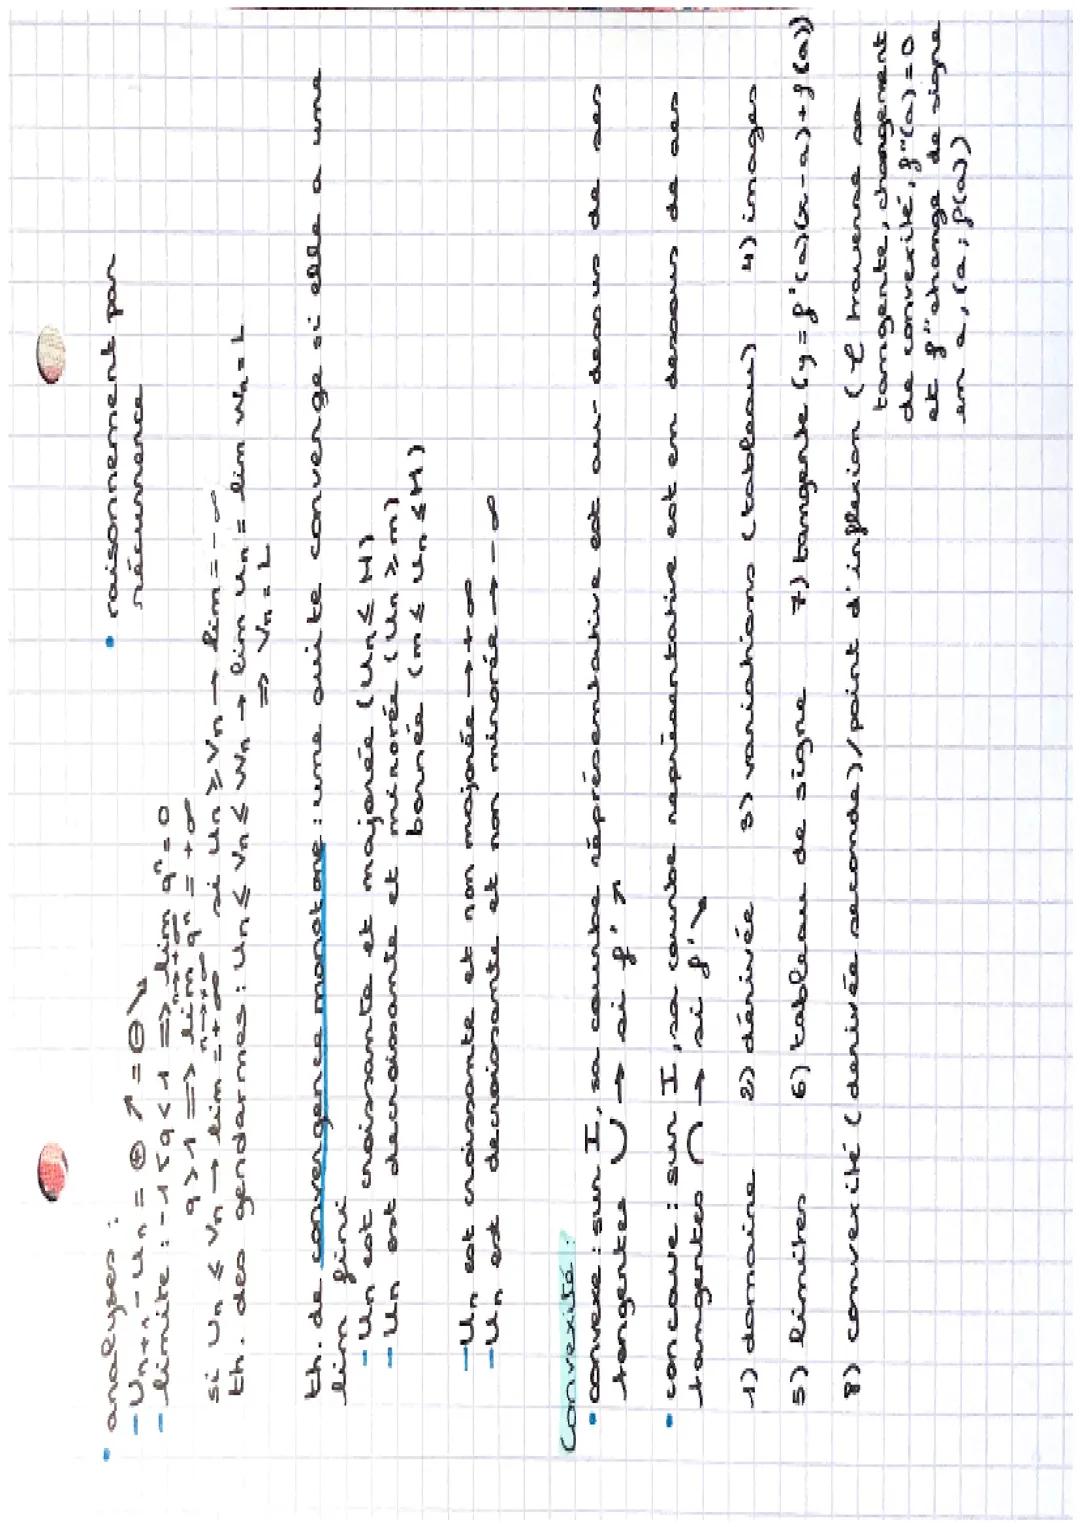 • analyses :
- Un+1 - Un = ⊕ ↗ = ⊖ ↘
- limite : -1 < q < 1 => lim qⁿ = 0
n→+∞
q > 1 => lim qⁿ = +∞
n→+∞
si Un ≤ Vn → lim = +∞ si Un ≥ Vn → lim = -∞
th. des gendarmes : Un ≤ Vn ≤ Wn → lim Un = lim Wn = L
=> Vn = L
• raisonnement par
récurrence
th. de convergence monotone : une suite converge si elle a une
lim fini
- Un est croissante et majorée (Un ≤ M)
- Un est decroissante et minorée (Un ≥ m)
bornée (m ≤ Un ≤ M)
- Un est croissante et non majorée → +∞
- Un est decroissante et non minorée → -∞
Convexité :
• convexe : sur I, sa courbe réprésentative est au-dessus de ses
tangentes ∪ → si f' ↗
• concave : sur I, sa courbe représentative est en dessous de ses
tangentes ∩ → si f' ↘
1) domaine 2) dérivée 3) variations (tableau) 4) images
5) limites 6) tableau de signe 7) tangente (y = f'(a)(x-a)+f(a))
8) convexité (derivée seconde)/point d'inflexion (C traverse sa
tangente, changement
de convexité, f"(a) = 0
et f" change de signe
en a, (a; f(a))